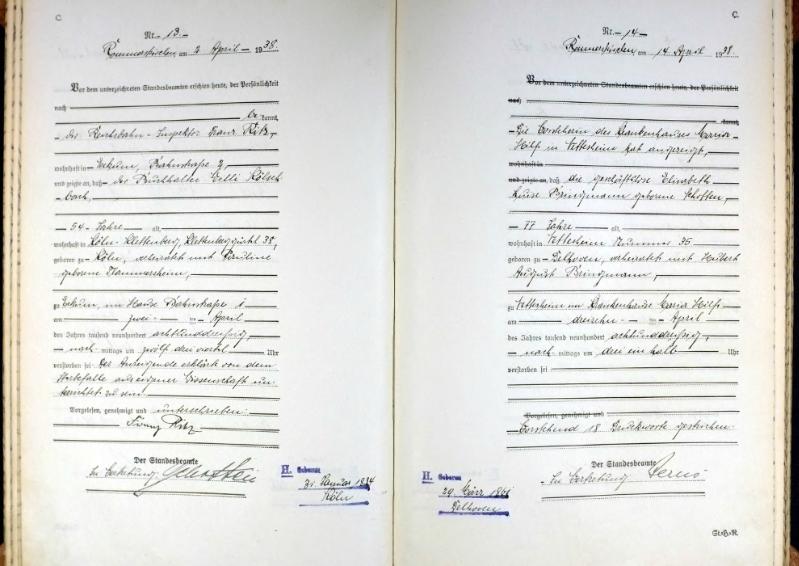 C.
Nr. 13.
Rommerskirchen am 2 April 1938.
Vor dem unterzeichneten Standesbeamten erschien heute, der Persönlichkeit
nach
kannt,
der Reichsbahn-Inspektor Franz Ritz,
wohnhaft in Eckum, Bahnstraße
und zeigte an, daß der Buchhalter Willi Kölsch
bach,
54 Jahre alt,
wohnhaft in Köln-Klettenberg, Klettenberggürtel 38,
geboren zu Köln, verheiratet mit Pauline
geborene Hammersheim,
zu Eckum, im Hause Bahnstraße
am zwei ten April
des Jahres tausend neunhundert achtunddreißig
nach mittags um zwölf drei viertel Uhr
verstorben sei. Der Anzeigende erklärt von dem
Sterbefalle aus eigener Wissenschaft un-
terrichtet zu sein.
Vorgelesen, genehmigt und unterschrieben.
Franz Ritz
Der Standesbeamte
In Vertretung
H. Geboren
Januar 1884
Köln
C.
Nr. 14
Rommerskirchen am 14 April 1938.
Vor dem unterzeichneten Standesbeamten erschien heute, der Persönlichkeit
nach
kannt,
Die Vorsteherin des Krankenhauses Maria-
Hilf in Vettesheim hat angezeigt,
wohnhaft in
und zeigte an, daß die geschäftslose Elisabeth
Bringmann geborene
77 Jahre alt,
wohnhaft in Vettesheim Nummer 35
geboren zu Delhoven, verheiratet mit Hubert
August Bringmann,
zu Vettesheim im Krankenhause Maria Hilf
am dreizehn ten April
des Jahres tausend neunhundert achtunddreißig,
nach mittags um drei ein halb Uhr
verstorben sei
Vorgelesen, genehmigt und
Vorstehend 18 Druckworte gestrichen.
Der Standesbeamte
In Vertretung
H. Geboren
29 März
Delhoven
St.H.R.